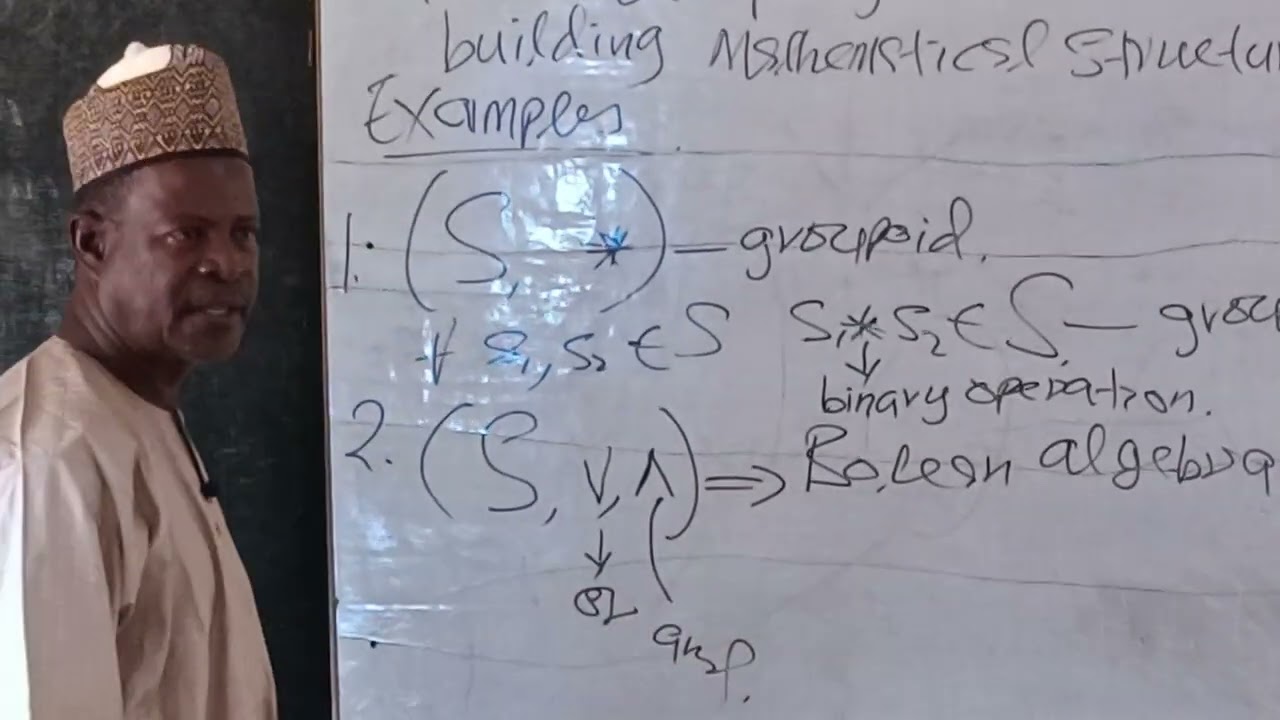 building Mathematical Structu
Examples
1. (S, *) — groupoid.
∀ s₁, s₂ ∈ S s₁ * s₂ ∈ S — grou
↓
binary operation.
2. (S, ∨, ∧) ⇒ Boolean algebra
↓
or
and